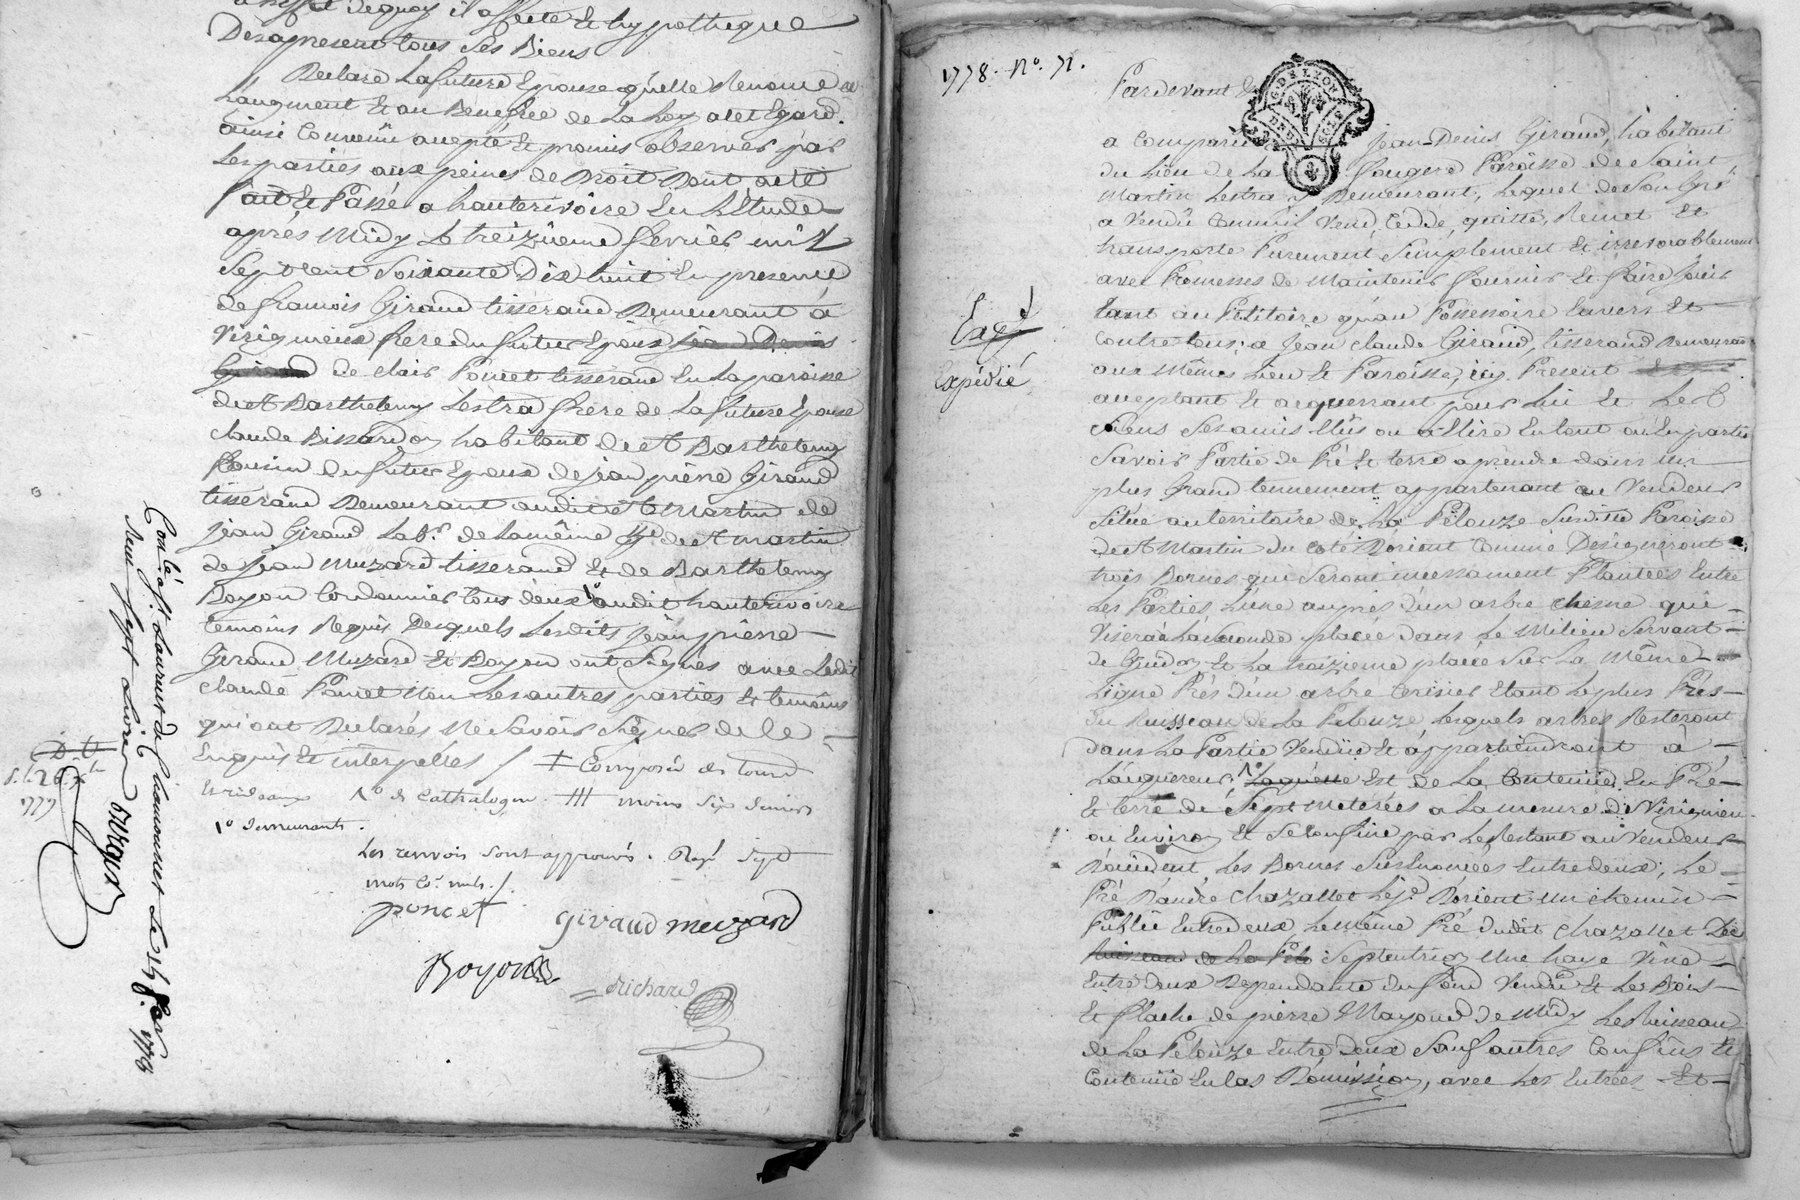 a l'effet dequoy il affecte et hypotheque
Desapresent tous ses Biens
Declare la future Epouse quelle Renonce
Et au Benefice de La Loy a cet Egard.
ainsi Convenu accepté et promis observer par
Les parties aux peines de Droit Dont acte
fait et Passé a hauterivoire En L'Etude
après Midy Le treizieme fevrier mil
Sept cent soixante Dix huit En presence
de francois Giraud tisserand Demeurant à
Virignieux frere du futur Epoux jean Denis
Giraud de clair Poncet tisserand En La paroisse
de St Barthelemy Lestra frere de La future Epouse
claude Bissardon habitant de St Barthelemy
Cousin du futur Epoux de jean pierre Giraud
tisserand Demeurant audit St Martin de
jean Giraud Labr. de Lamême psse de St martin
de jean muzard tisserand et de Barthelemy
Boyon Cordonnier tous deux audit hauterivoire
temoins Requis Desquels Lesdits jean pierre
Giraud Muzard et Boyon ont Signés avec Ledit
claude Poncet Non Les autres parties et temoins
qui ont Declarés Ne Savoir Signer de ce
Enquis et interpellés / ‡ Composée de tour
rideaux moins six deniers
1º demeurants.
Les renvois sont approuvés. Rayé sept
mots Co. nuls ./.
poncet
giraud muzard
Boyon
Richard
Conlé a St. Laurent de Chamousset Le 14 fev. 1778
Reçu sept Livres
1777
1778. Nº. 71.
Pardevant
G. DE LYON
DEUX SOLS
a Comparu jean Denis Giraud, habitant
du Lieu de La fougere Paroisse de Saint
Martin Lestra y Demeurant, lequel de Son gré
a Vendu Comme il Vend, Cedde, quitte, Remet Et
transporte Purement Simplement Et irrevocablement
avec Promesses de Maintenir fournir Et faire jouir
tant au Petitoire qu'au Possessoire Envers Et
Contre tous; a Jean claude Giraud, tisserand Demeurant
Expédié
aux Mêmes Lieu Et Paroisse, icy Present
acceptant Et acquerrant pour Lui Et Les
Siens Ses amis Elus ou a Elire En tout ou En partie
Savoir Partie de Pré Et terre a prendre dans un
plus Grand tennement appartenant au Vendeur
Situé au territoire de La Pelouze Susditte Paroisse
de St Martin du coté D'orient Comme Designeront
trois Bornes qui Seront incessament Plantées Entre
Les Parties L'une auprès d'un arbre chesne qui
Visera La Seconde placée dans Le Milieu Servant
de Guidon Et La troizieme placée Sur La Même
Ligne Près d'un arbre Cerisier Etant Le plus Près
du Ruisseau de La Pelouze Lesquels arbres Resteront
dans La Partie Vendüe Et appartiendront à
L'aquereur, Laquelle Est de La Contenüe En Pré
Et terre de Sept Meterées a La mesure de Virignieu
ou Environ Et Se Confine par Le Restant au Vendeur
D'occident, Les Bornes Susenoncées Entredeux; Le
Pré D'andré Chazallet Lejne D'orient un chemin
Public Entredeux, Le même Pré dudit Chazallet De
Ruisseau de La Pelo Septentrion une haye Vive
Entre deux Dependante du fond Vendu Et Les Bois
Et flache de pierre Mayoud de Midy Le Ruisseau
de La Pelouze Entre deux Sauf autres Confins Et
Contenüe En Cas D'omission, avec Les Entrées Et